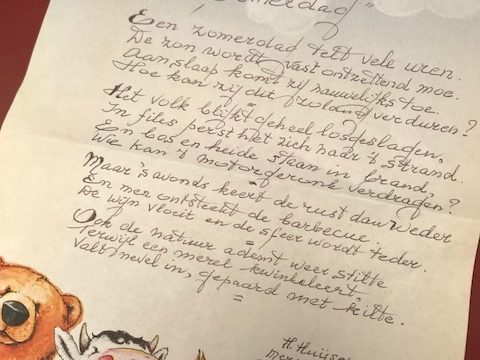 Zomerdag"
Een zomerdag telt vele uren.
De zon wordt vast ontzettend moe.
Aan slaap komt zij nauwelijks toe.
Hoe kan zij dit zolang verduren?
=
Het volk blijkt geheel losgeslagen,
In files perst het zich naar 't strand.
En bos en heide staan in brand,
Wie kan 't motorgeronk verdragen?
=
Maar 's avonds keert de rust dan weder
En men ontsteekt de barbecue.
De wijn vloeit en de sfeer wordt teder.
=
Ook de natuur ademt weer stilte
Terwijl een merel kwinkeleert.
Valt nevel in, gepaard met kilte.
=
H. Huijse